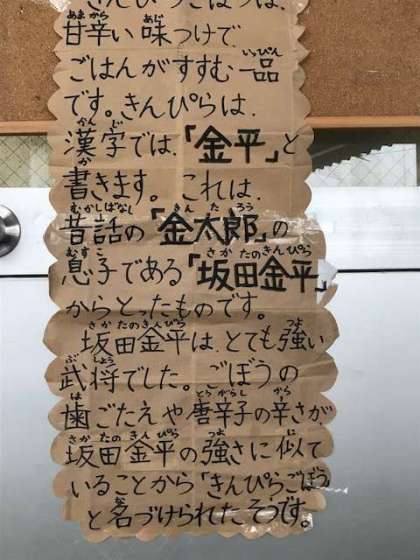 きんぴらごぼうは、
甘辛い味つけで、
ごはんがすすむ一品
です。きんぴらは、
漢字では、「金平」と
書きます。これは、
昔話の「金太郎」の
息子である「坂田金平」
からとったものです。
坂田金平は、とても強い
武将でした。ごぼうの
歯ごたえや唐辛子の辛さが、
坂田金平の強さに似て
いることから「きんぴらごぼう」
と名づけられたそうです。